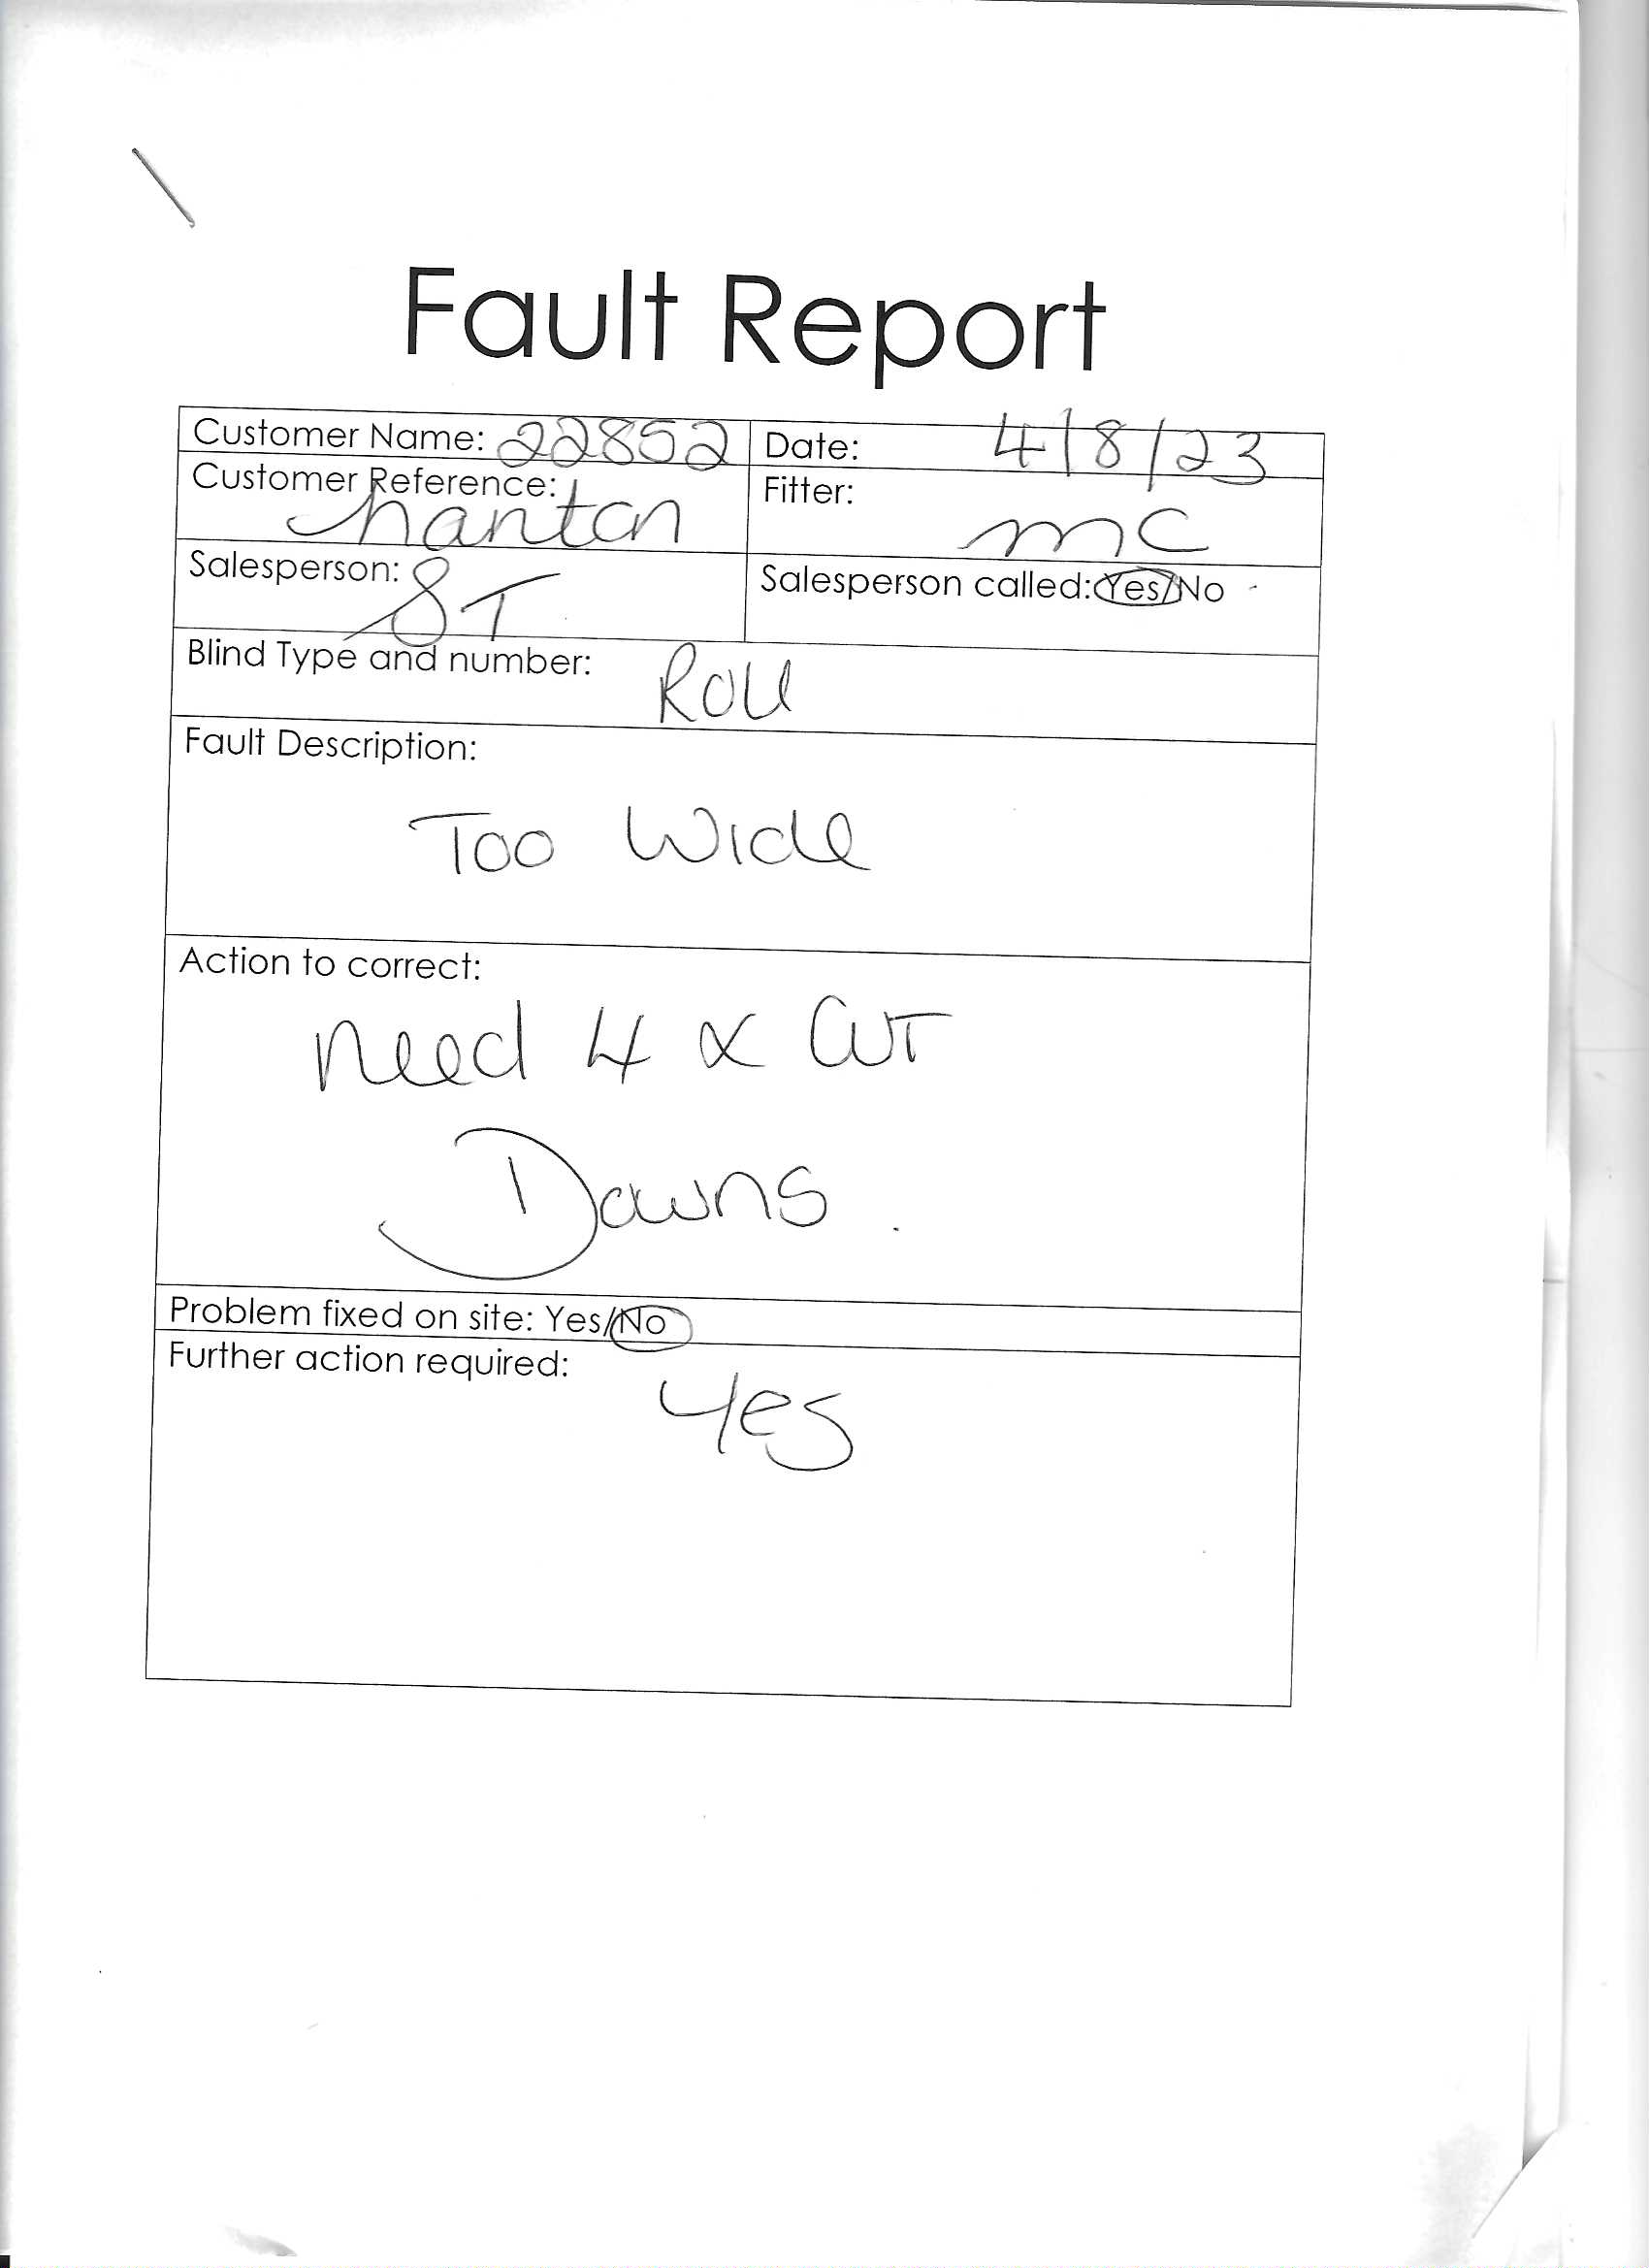 Fault Report
Customer Name: 22852
Date: 4/8/23
Customer Reference: hanton
Fitter: mc
Salesperson: ST
Salesperson called: Yes/No
Blind Type and number: Roll
Fault Description:
Too Wide
Action to correct:
need 4 x Cut
Downs.
Problem fixed on site: Yes/No
Further action required: Yes